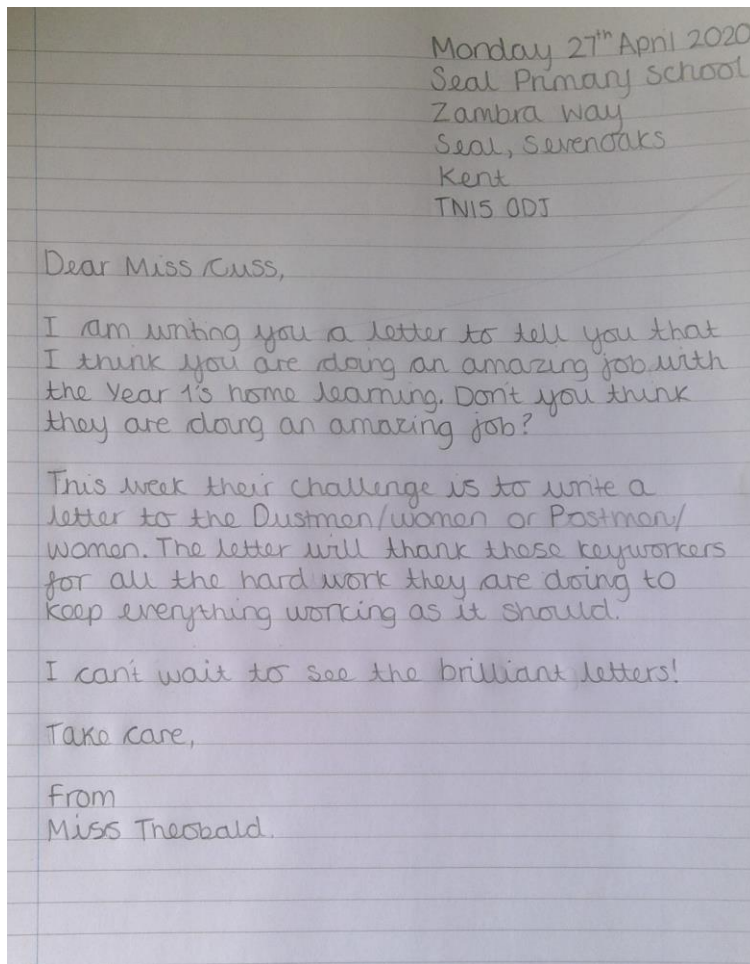 Monday 27th April 2020
Seal Primary School
Zambra Way
Seal, Sevenoaks
Kent
TN15 0DJ
Dear Miss Cuss,
I am writing you a letter to tell you that
I think you are doing an amazing job with
the Year 1's home learning. Don't you think
they are doing an amazing job?
This week their challenge is to write a
letter to the Dustmen/women or Postmen/
women. The letter will thank these keyworkers
for all the hard work they are doing to
keep everything working as it should.
I can't wait to see the brilliant letters!
Take care,
from
Miss Theobald.